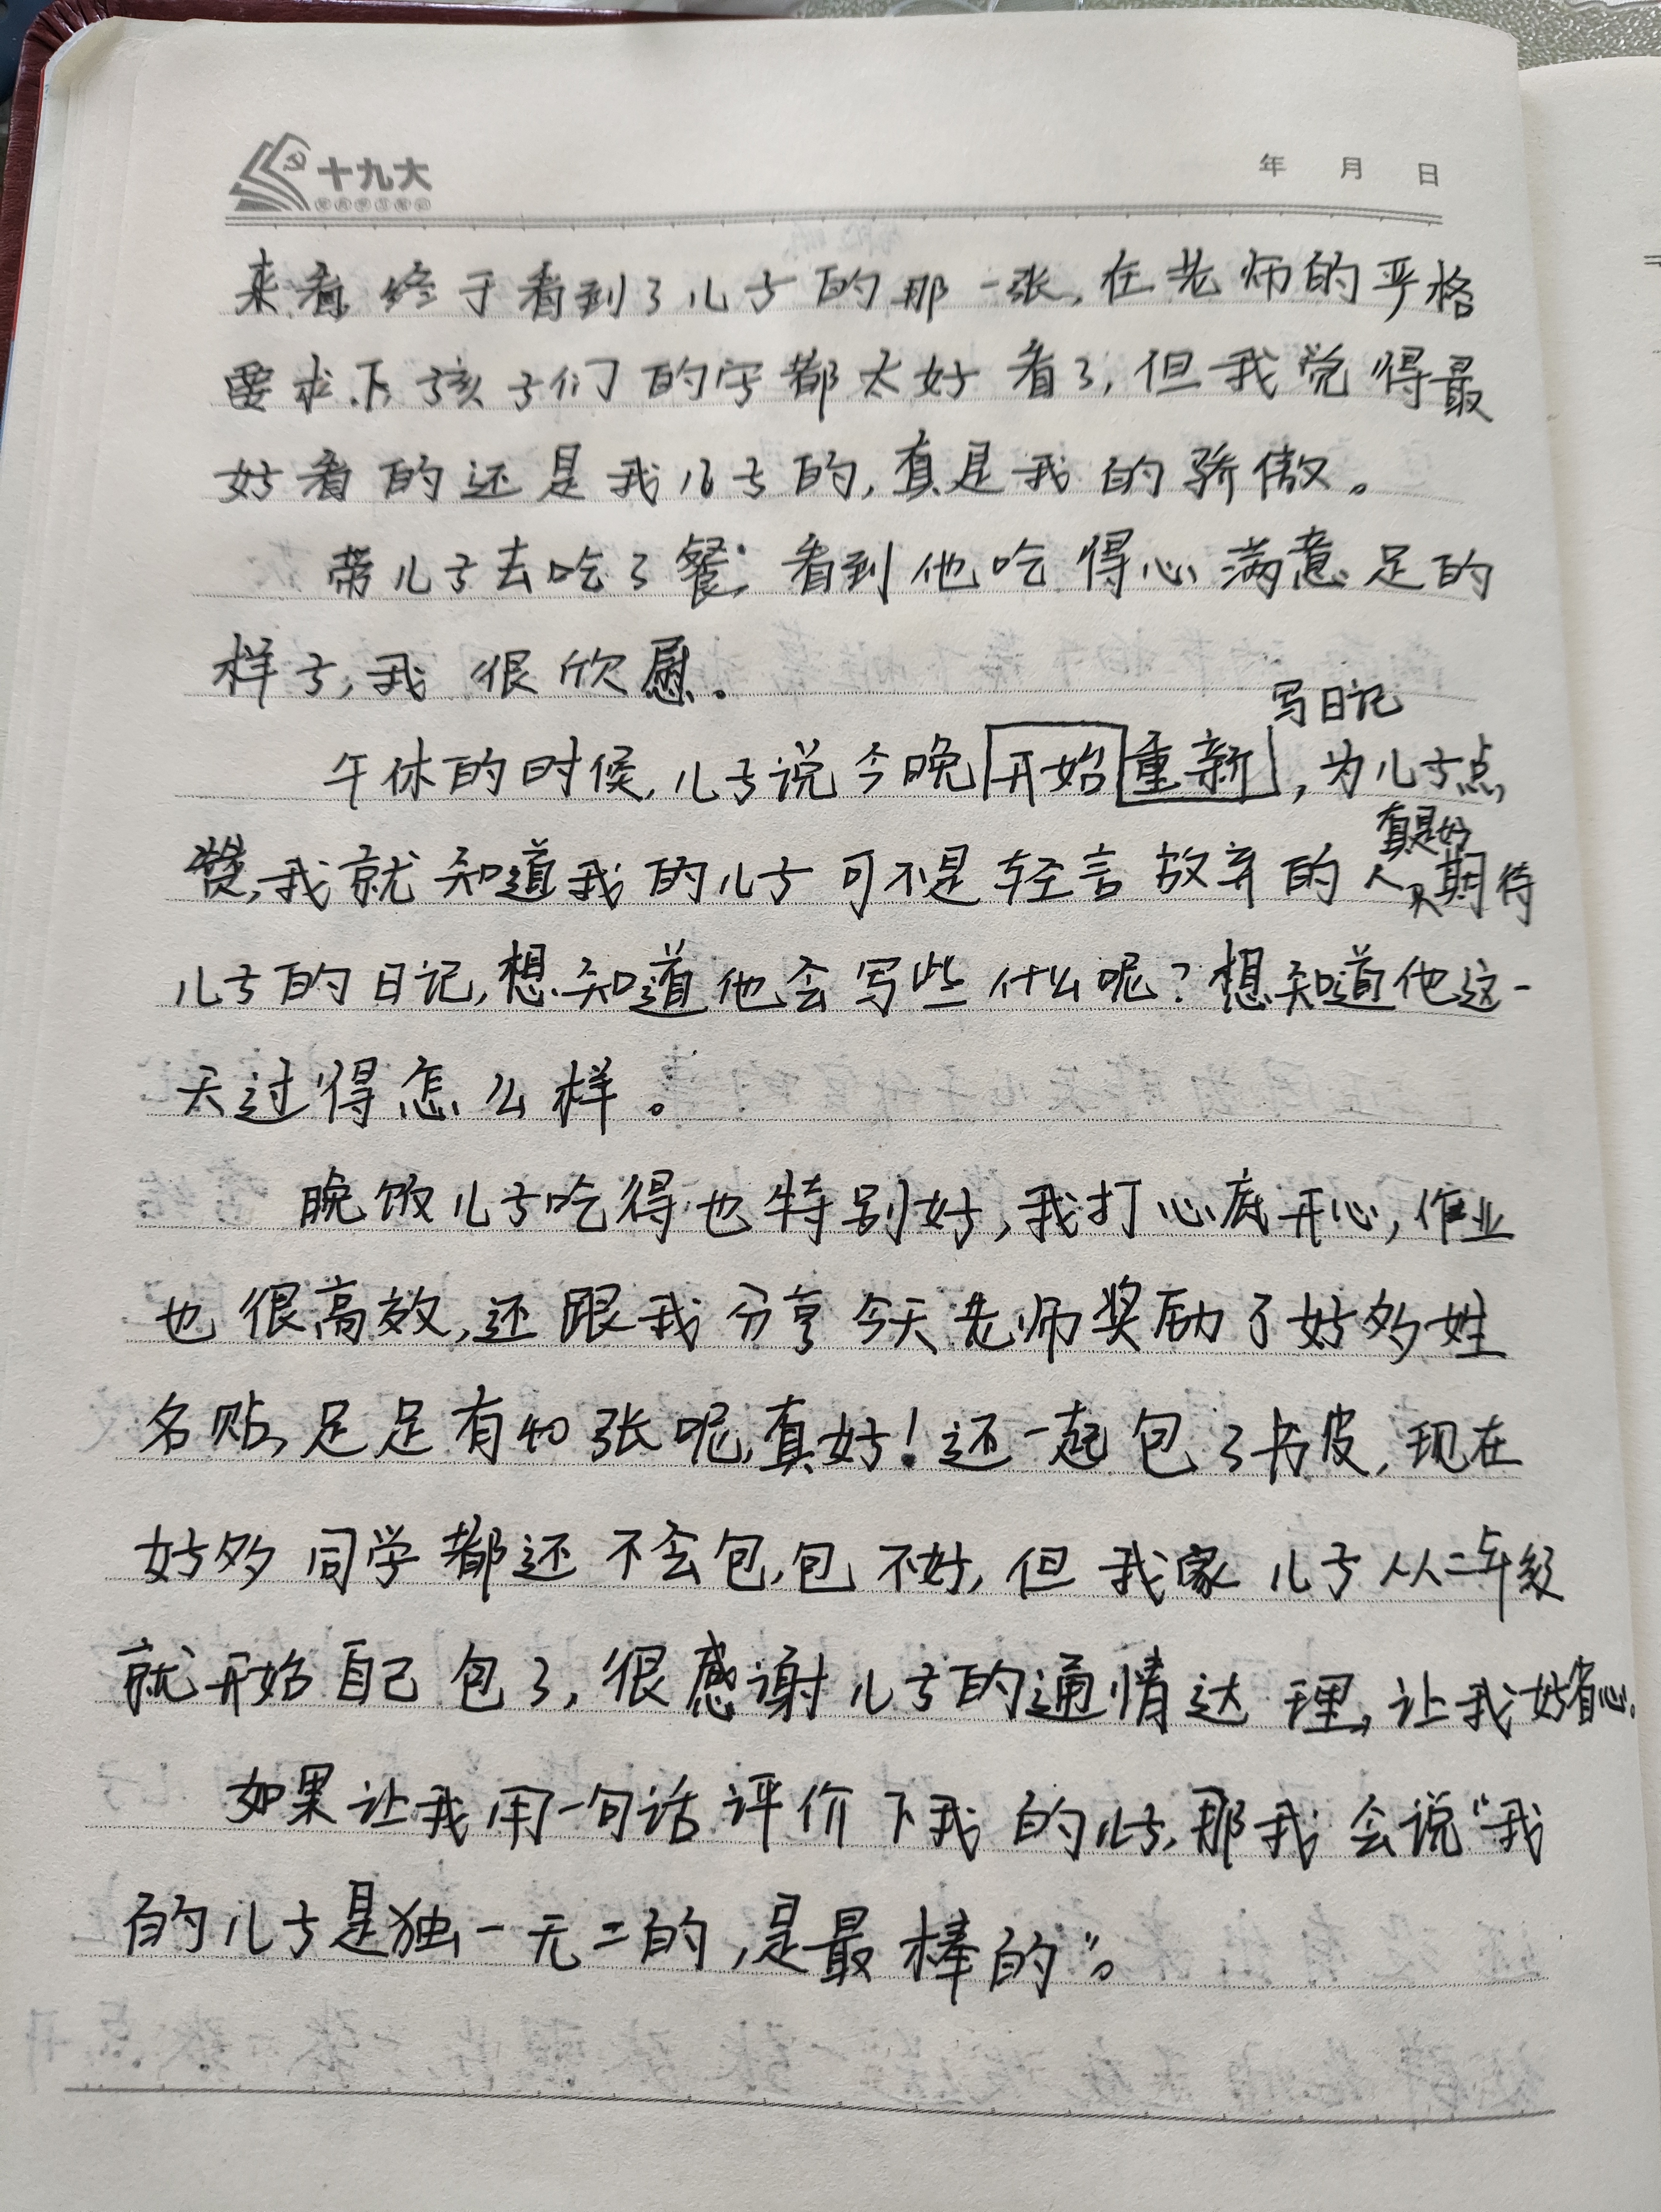 十九大
年 月 日
来看,终于看到了儿子的那一张,在老师的严格
要求下孩子们的字都太好看了,但我觉得最
好看的还是我儿子的,真是我的骄傲。
带儿子去吃了餐,看到他吃得心满意足的
样子,我很欣慰。
写日记
午休的时候,儿子说今晚开始重新,为儿子点
真是好
赞,我就知道我的儿子可不是轻言放弃的人,期待
儿子的日记,想知道他会写些什么呢?想知道他这一
天过得怎么样。
晚饭儿子吃得也特别好,我打心底开心,作业
也很高效,还跟我分享今天老师奖励了好多姓
名贴,足足有40张呢,真好!还一起包了书皮,现在
好多同学都还不会包,包不好,但我家儿子从二年级
就开始自己包了,很感谢儿子的通情达理,让我好省心。
如果让我用一句话评价下我的儿子,那我会说“我
的儿子是独一无二的,是最棒的”。